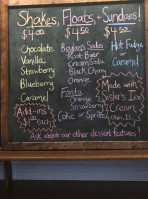 Shakes, Floats, & Sundaes!
$4.00 $4.50 $4.50
Chocolate
Vanilla
Strawberry
Blueberry
Caramel
Add-ins
$1.00 Each
Boylan's Soda
Root Beer
Cream Soda
Black Cherry
Orange
Fanta
Orange
Strawberry
Coke or Sprite
Hot Fudge
or
Caramel
Made with
Sister's Ice
Cream
Ask about our other dessert features